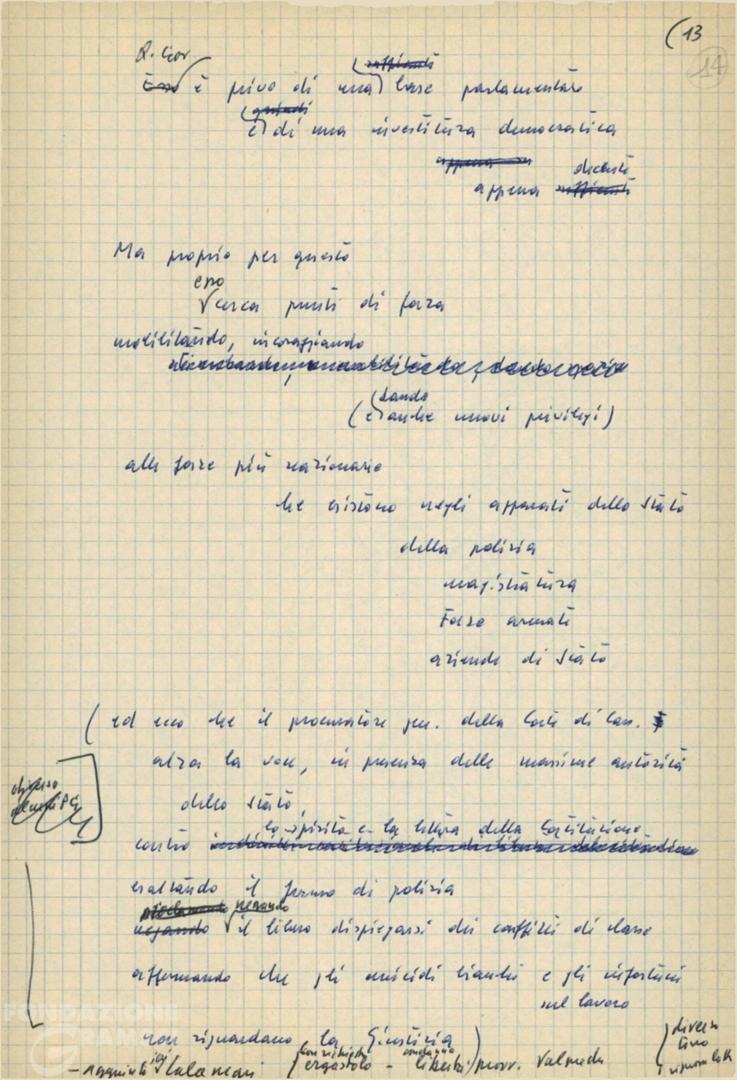 (13
14
Il Gov
Esso è privo di una (sufficiente) base parlamentare
(quindi)
e di una investitura democratica
appena
appena decente sufficiente
Ma proprio per questo
esso
cerca punti di forza
mobilitando, incoraggiando
(e dando anche nuovi privilegi)
alle forze più reazionarie
che esistono negli apparati dello Stato
della polizia
magistratura
Forze armate
aziende di Stato
(ed ecco che il procuratore gen. della Corte di Cass.
alza la voce, in presenza delle massime autorità
dello Stato,
lo spirito e la lettera della Costituzione
contro
esaltando il fermo di polizia
negando
negando il libero dispiegarsi dei conflitti di classe
affermando che gli omicidi bianchi e gli infortuni
sul lavoro
non riguardano la Giustizia)
ergastolo
provv. Valpreda
FONDAZIONE
GRAMSCI